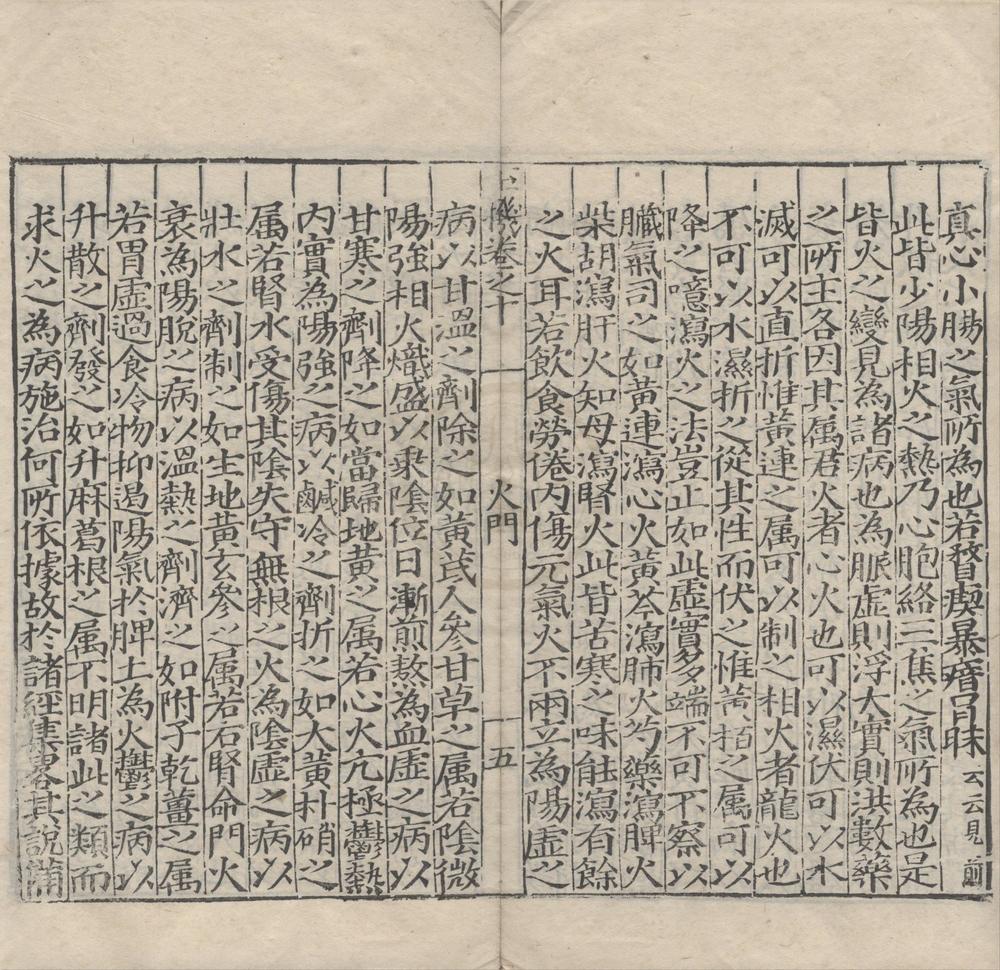 真心小腸之氣所為也若瞀瘈暴瘖冒昧云云見前
此皆少陽相火之熱乃心胞絡三焦之氣所為也是
皆火之變見為諸病也為脈虛則浮大實則洪數藥
之所主各因其属君火者心火也可以濕伏可以水
滅可以直折惟黃連之属可以制之相火者龍火也
不可以水濕折之從其性而伏之惟黃栢之属可以
降之噫瀉火之法豈止如此虛實多端不可不察以
臟氣司之如黃連瀉心火黃芩瀉肺火芍藥瀉脾火
柴胡瀉肝火知母瀉腎火此皆苦寒之味能瀉有餘
之火耳若飲食勞倦內傷元氣火不兩立為陽虛之
機卷之十 火門 五
病以甘溫之劑除之如黃芪人參甘草之属若陰微
陽強相火熾盛以乘陰位日漸煎熬為血虛之病以
甘寒之劑降之如當歸地黃之属若心火亢極鬱熱
內實為陽強之病以鹹冷之劑折之如大黃朴硝之
属若腎水受傷其陰失守無根之火為陰虛之病以
壯水之劑制之如生地黃玄參之属若右腎命門火
衰為陽脫之病以溫熱之劑濟之如附子乾薑之属
若胃虛過食冷物抑遏陽氣於脾土為火鬱之病以
升散之劑發之如升麻葛根之属不明諸此之類而
求火之為病施治何所依據故於諸經集畧其說備